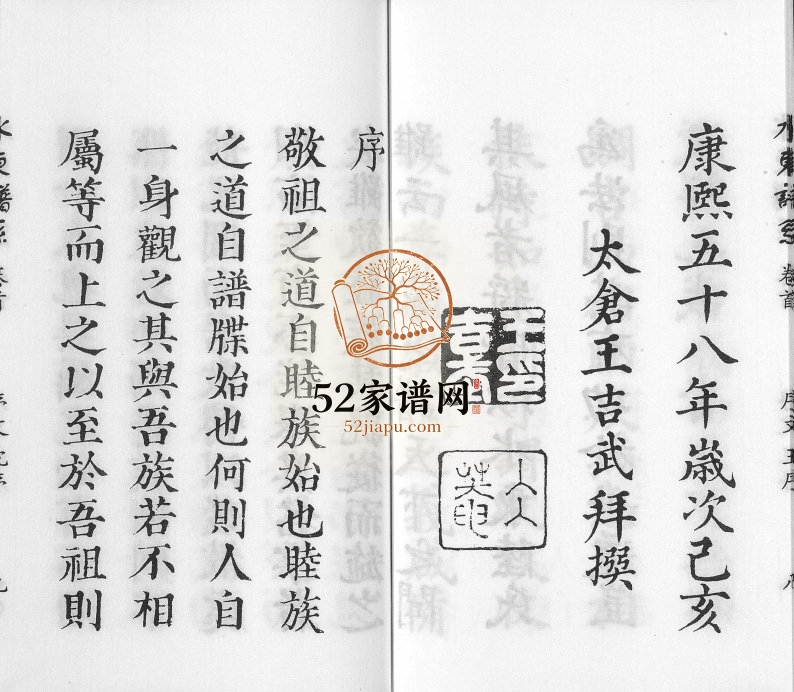 康熙五十八年歲次己亥
太倉王吉武拜撰
序
敬祖之道自睦族始也睦族
之道自譜牒始也何則人自
一身觀之其與吾族若不相
屬等而上之以至於吾祖則
52家谱网
52jiapu.com